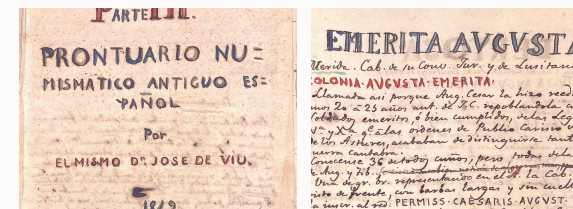 PARTE III.
PRONTUARIO NU=
MISMÁTICO ANTIGUO ES=
PAÑOL
Por
EL MISMO Dn. JOSE DE VIU.
EMERITA AVGVSTA
Merida. Cab. de su Conv. Jur. y de Lusitan
OLONIA·AVGVSTA·EMERITA.
Llamada asi porque Aug. Cesar la hizo reed
nos 20 á 25 años ant. de J.C. repoblandola c
oldados emeritos, ó bien cumplidos, de las Leg
las ordenes de Publio Carisio
los Astures, acababan de distinguirse tant
uerra cantabra.
Conocense 36 cuños, pero todos de la
de Aug. y Tib.
Un de gr. br. representando en el A. la cab.
visto de frente, con barbas largas y sin cuell
a inscr. al red. PERMISS·CAESARIS·AVGVST·